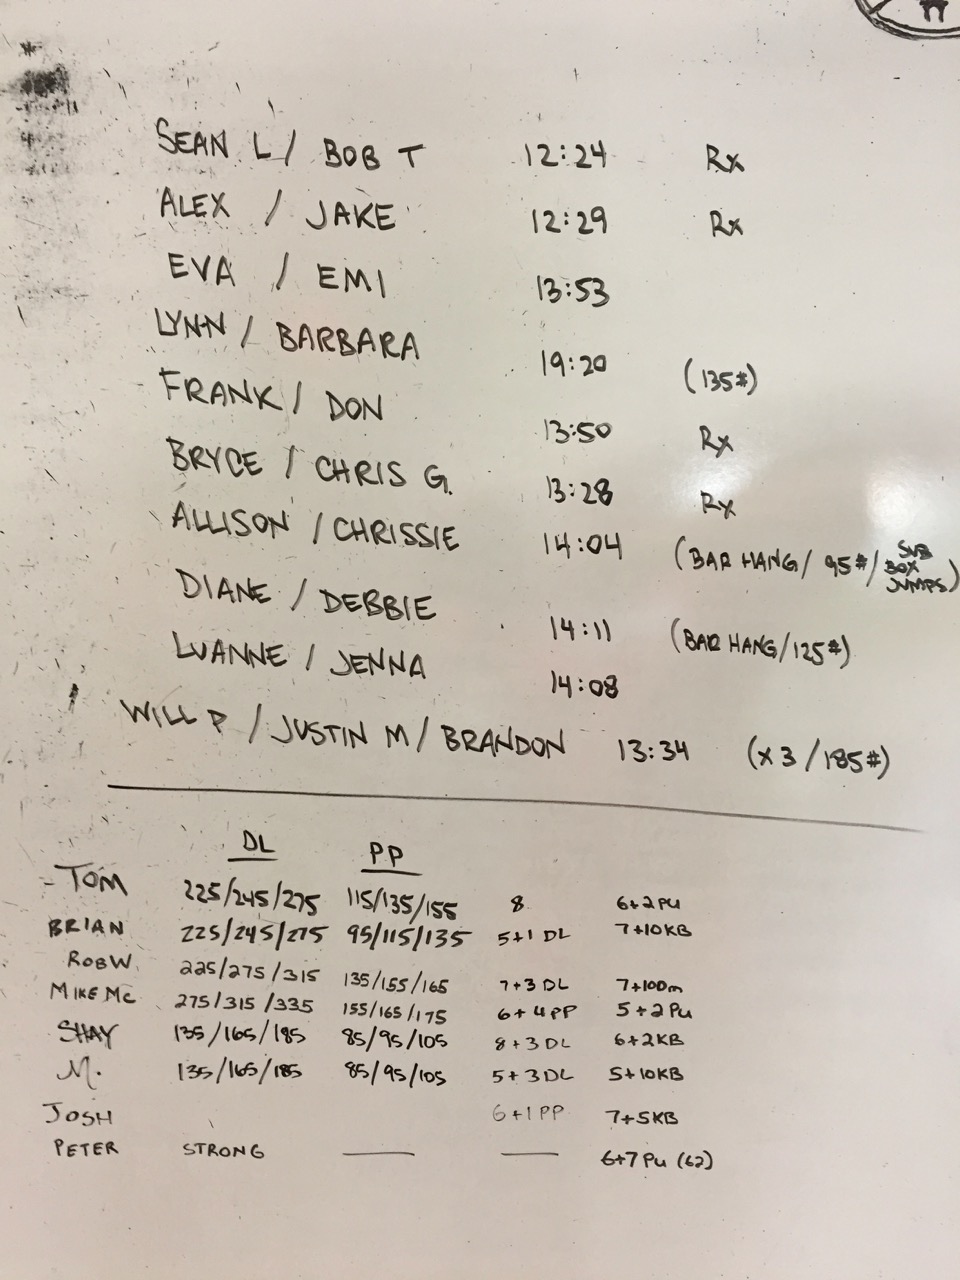 SEAN L / BOB T 12:24 Rx
ALEX / JAKE 12:29 Rx
EVA / EMI 13:53
LYNN / BARBARA 19:20 (135#)
FRANK / DON 13:50 Rx
BRYCE / CHRIS G. 13:28 Rx
ALLISON / CHRISSIE 14:04 (BAR HANG / 95# / SUB BOX JUMPS)
DIANE / DEBBIE 14:11 (BAR HANG / 125#)
LUANNE / JENNA 14:08
WILL P / JUSTIN M / BRANDON 13:34 (x 3 / 185#)
DL PP
TOM 225/245/275 115/135/155 8 6+2 PU
BRIAN 225/245/275 95/115/135 5+1 DL 7+10KB
ROB W 225/275/315 135/155/165 7+3 DL 7+100m
MIKE MC 275/315/335 155/165/175 6+4 PP 5+2 PU
SHAY 135/165/185 85/95/105 8+3 DL 6+2KB
M. 135/165/185 85/95/105 5+3 DL 5+10KB
JOSH 6+1 PP 7+5KB
PETER STRONG — — 6+7 PU (62)